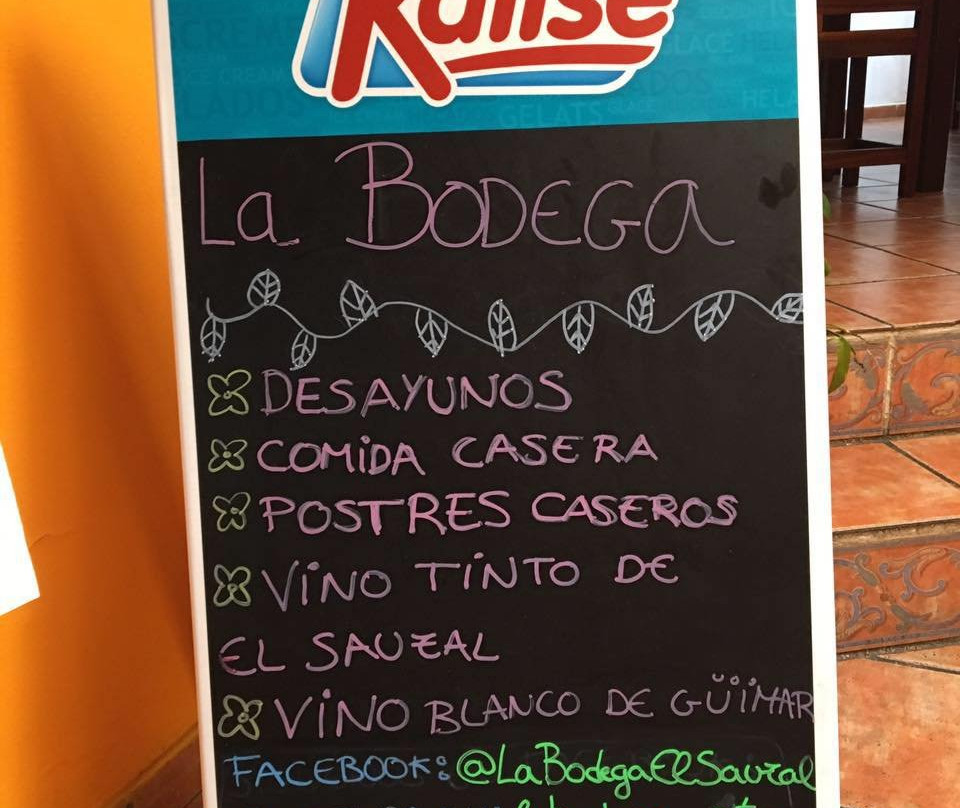 Kalise
GELATS
La BODEGA
DESAYUNOS
COMiDA CASERA
POSTRES CASEROS
ViNO TiNTO DE
EL SAUZAL
ViNO BLANCO DE GÜiMAR
FACEBOOK: @LaBodegaElSauzal